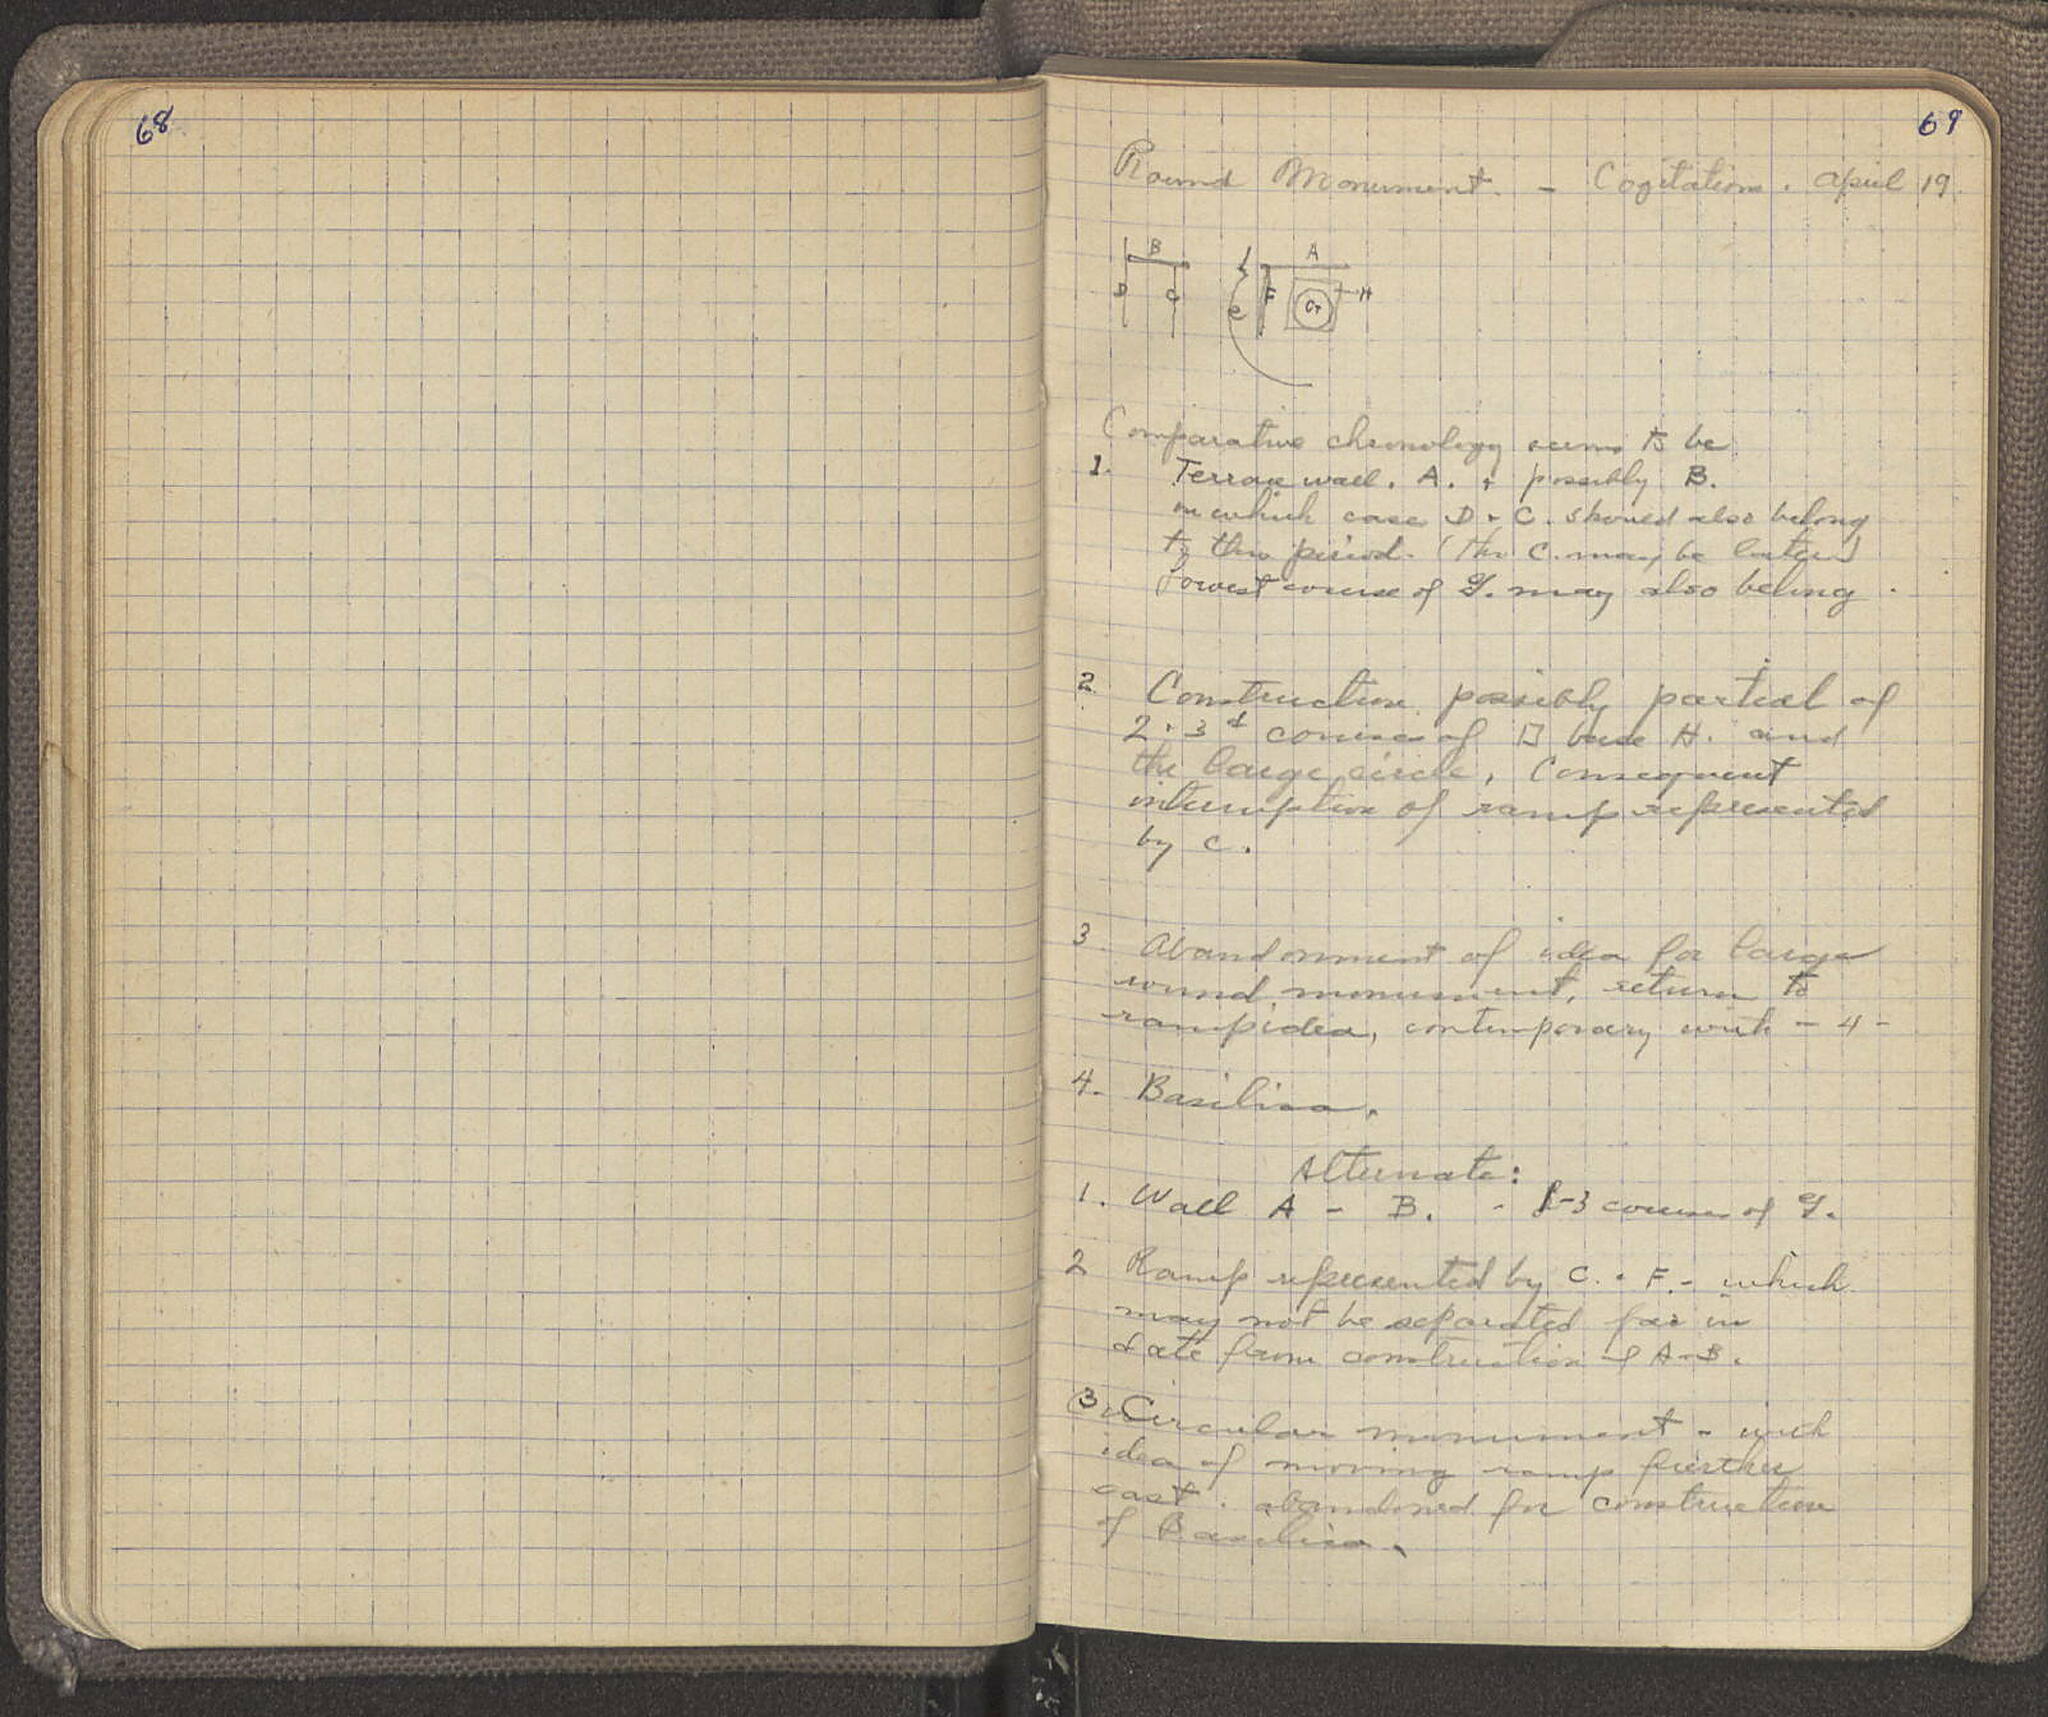 68
69
Round Monument. - Cogitations. April 19.
B
A
D
C
e
F
G
H
Comparative chronology seems to be
1. Terrace wall. A. + possibly B.
in which case D + C. should also belong
to this period. (tho C. may be later)
Lowest course of G. may also belong.
2. Construction possibly partial of
2 + 3d courses of □ base H. and
the large circle. Consequent
interruption of ramp represented
by C.
3. Abandonment of idea for large
round monument, return to
ramp idea, contemporary with - 4 -
4. Basilica.
Alternate:
1. Wall A - B. - 1-3 courses of G.
2 Ramp represented by C. + F. - which
may not be separated far in
date from construction of A-B.
3 Circular monument - with
idea of moving ramp further
east. abandoned for construction
of Basilica.